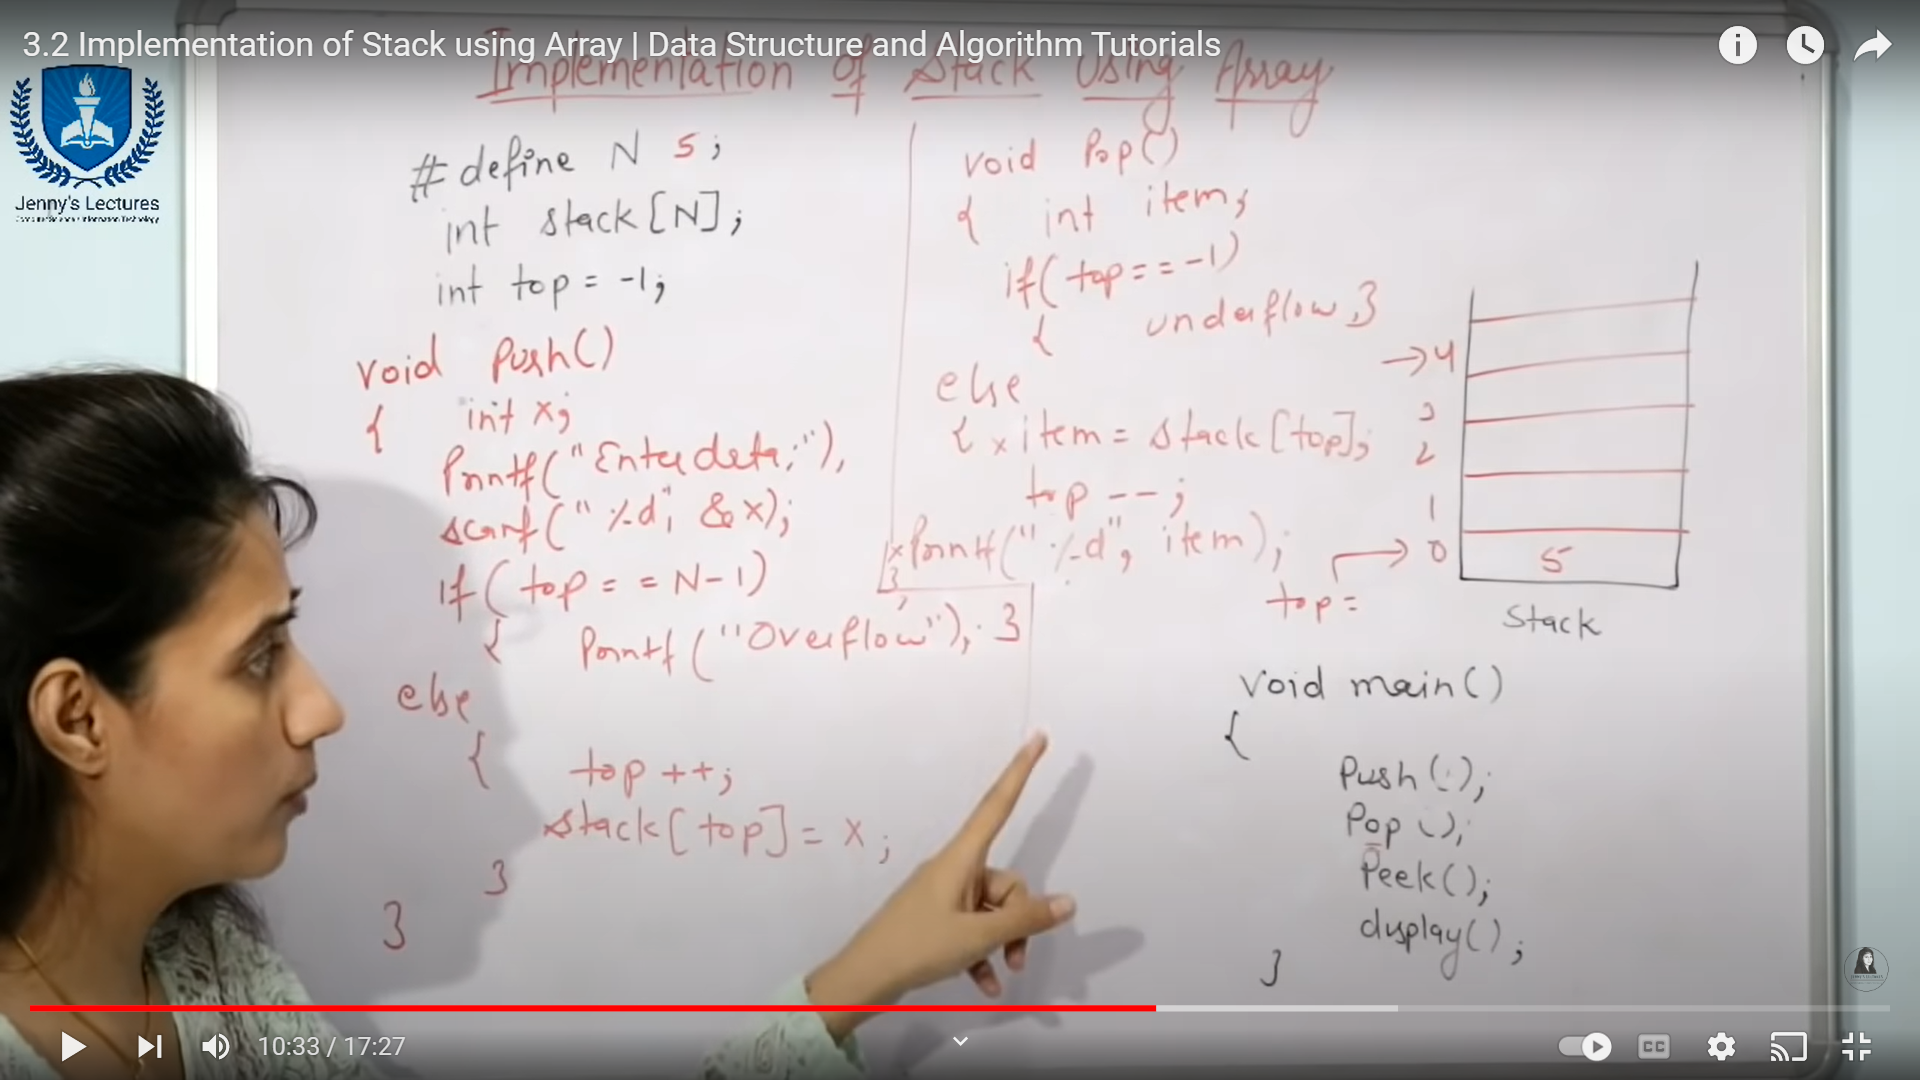 3.2 Implementation of Stack using Array | Data Structure and Algorithm Tutorials
Implementation of Stack Using Array
Jenny's Lectures
#define N 5;
int stack[N];
int top = -1;
void Push()
{ int x;
Printf("Enter data:");
scanf("%d", &x);
if(top == N-1)
{ Printf("Overflow"); }
else
{ top ++;
stack[top] = x;
}
}
void Pop()
{ int item;
if(top == -1)
{ underflow }
else
{ item = stack[top];
top --;
Printf("%d", item);
}
→4
3
2
1
0
5
top =
Stack
void main()
{
Push();
Pop();
Peek();
display();
}
10:33 / 17:27
CC